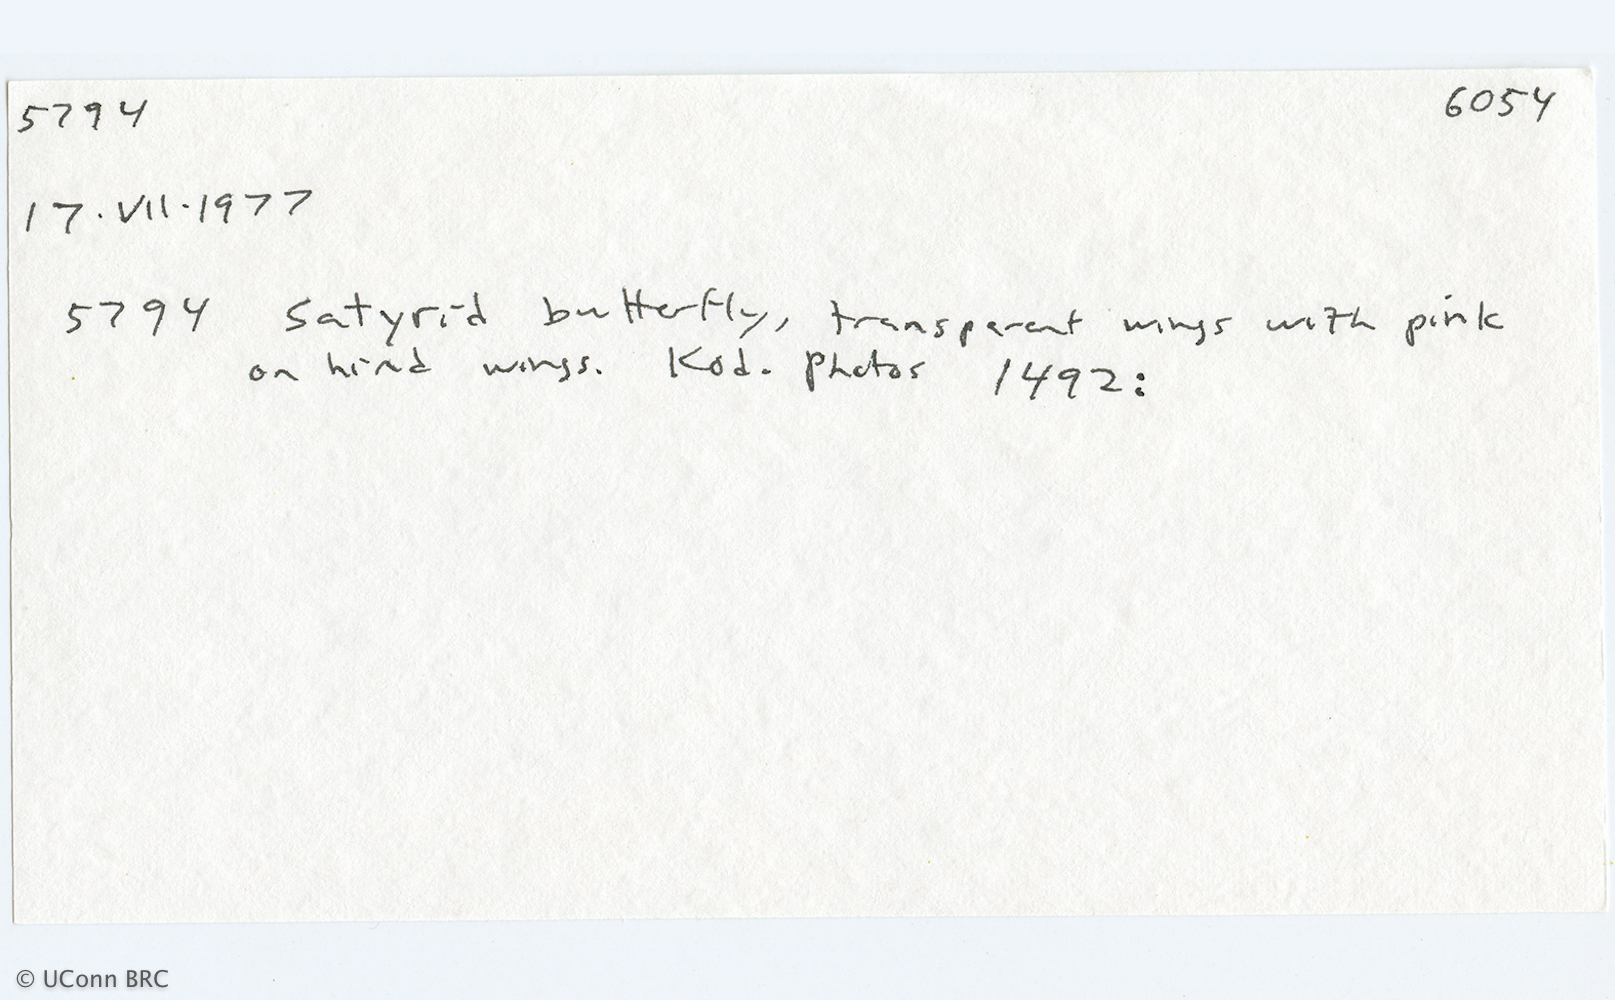 5794 6054
17.VII.1977
5794 Satyrid butterfly, transparent wings with pink
on hind wings. Kod. Photos 1492:
© UConn BRC